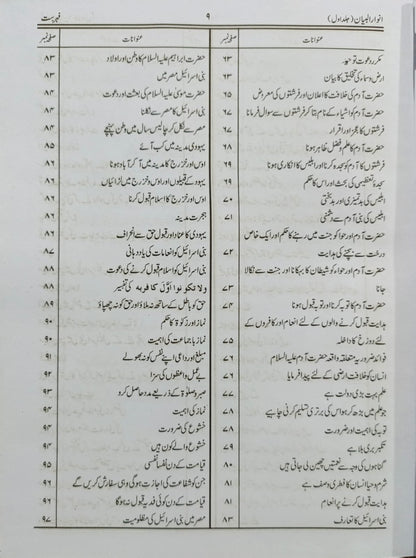 انوار البیان (جلد اول) ۹ فہرست
عنوانات صفحہ نمبر
مکرر دعوت توحید ۶۳
ارض وسماء کی تخلیق کا بیان ۶۳
حضرت آدمؑ کی خلافت کا اعلان اور فرشتوں کی معروض ۶۵
حضرت آدمؑ کو اشیاء کے نام بتا کر فرشتوں سے سوال فرمانا ۶۷
فرشتوں کا عجز اور اقرار ۶۷
حضرت آدمؑ کا علم و فضل ظاہر ہونا ۶۸
حضرت آدمؑ کو سجدہ کرنا اور ابلیس کا انکاری ہونا ۶۹
سجدۂ تعظیمی کی بحث اور اس کا حکم ۶۹
ابلیس کی بدتمیزی اور بدبختی ۷۰
ابلیس کی بنی آدم سے دشمنی ۷۱
حضرت آدمؑ اور حواء کو جنت میں رہنے کا حکم اور ایک خاص
درخت سے بچنے کی ہدایت ۷۲
حضرت آدمؑ اور حواء کو شیطان کا بہکانا اور جنت سے نکالا
جانا ۷۳
حضرت آدمؑ کا توبہ کرنا اور توبہ قبول ہونا ۷۴
ہدایت قبول کرنے والوں کے لئے انعام اور کافروں کے
لئے دوزخ کا داخلہ ۷۵
فوائد ضروریہ متعلقہ واقعہ حضرت آدم علیہ السلام ۷۶
انسان کو خلافت ارضی کے لئے پیدا فرمایا ۷۶
علم بہت بڑی دولت ہے ۷۷
جو علم میں بڑھ کر ہو اس کی برتری تسلیم کرنی چاہیے ۷۸
توبہ کی اہمیت اور ضرورت ۷۸
تکبر بری بلا ہے ۷۹
گناہوں کی وجہ سے نعمتیں چھین لی جاتی ہیں ۸۰
شرم و حیا انسان کا فطری وصف ہے ۸۱
ہدایت قبول کرنے پر انعام ۸۱
بنی اسرائیل کا تعارف ۸۳
عنوانات صفحہ نمبر
حضرت ابراہیم علیہ السلام کا وطن اور اولاد ۸۳
بنی اسرائیل مصر میں ۸۳
حضرت موسیٰ علیہ السلام کی بعثت اور دعوت ۸۴
بنی اسرائیل کا مصر سے نکلنا ۸۴
مصر سے نکل کر چالیس سال میں وطن پہنچے ۸۴
یہودی مدینہ میں کب آئے ۸۵
اوس اور خزرج کا مدینہ میں آ کر آباد ہونا ۸۶
یہود کے قبیلوں اور اوس و خزرج میں لڑائیاں ۸۶
اوس اور خزرج کا اسلام قبول کرنا ۸۶
ہجرت مدینہ ۸۶
یہود کا عناد اور قبول حق سے انحراف ۸۶
بنی اسرائیل کو انعامات کی یاد دہانی ۸۷
بنی اسرائیل کو اسلام قبول کرنے کی دعوت ۸۸
ولا تکونوا اوّل کافر بہ کی تفسیر ۸۸
حق کو باطل کے ساتھ نہ ملاؤ اور حق کو نہ چھپاؤ ۸۹
نماز اور زکوٰۃ کا حکم ۹۰
نماز با جماعت کی اہمیت ۹۰
مبلغ اور داعی اپنے نفس کو نہ بھولے ۹۱
بے عمل واعظوں کی سزا ۹۲
صبر و صلوٰۃ کے ذریعے مدد حاصل کرو ۹۳
نماز کی اہمیت ۹۴
خشوع کی ضرورت ۹۴
خشوع والے کون ہیں ۹۴
قیامت کے دن نفسا نفسی ۹۵
جن کو شفاعت کی اجازت ہو گی وہی سفارش کریں گے ۹۶
قیامت کے دن کوئی فدیہ قبول نہ ہوگا ۹۶
مصر میں بنی اسرائیل کی مظلومیت ۹۷